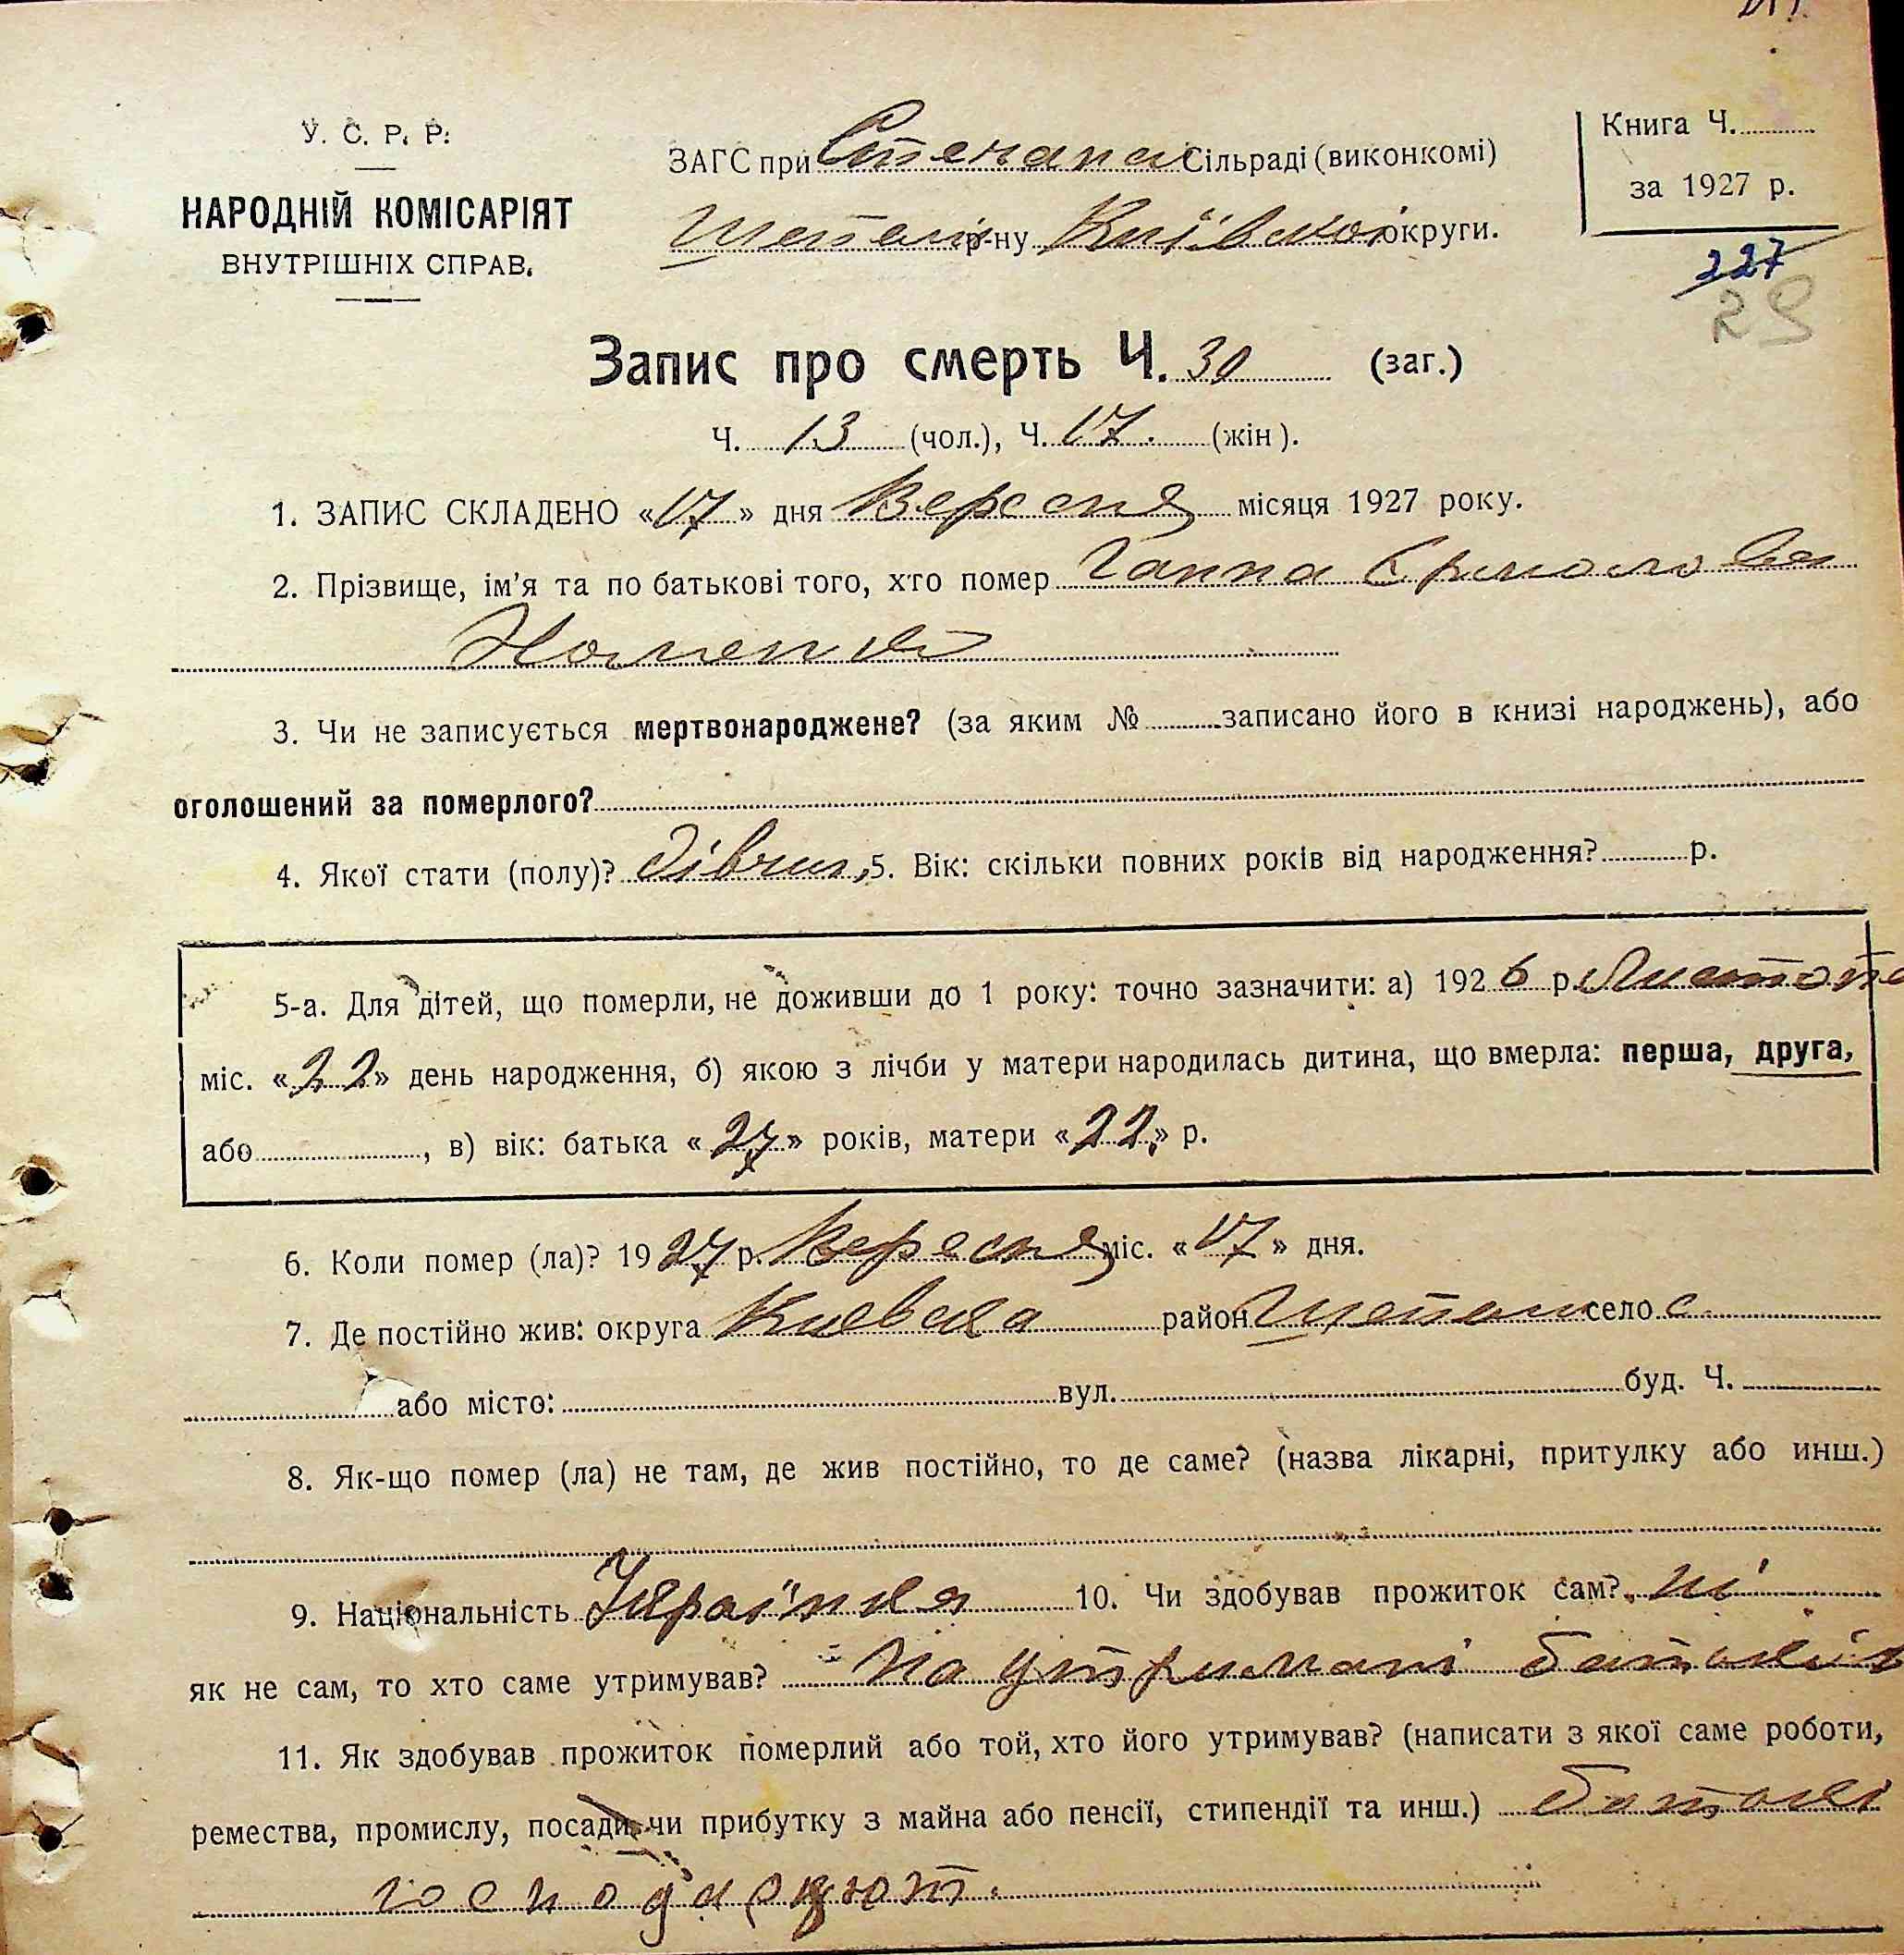 У. С. Р. Р.
НАРОДНІЙ КОМІСАРІЯТ
ВНУТРІШНІХ СПРАВ.
ЗАГС при Сільраді (виконкомі)
р-ну Київської округи.
Книга Ч.
за 1927 р.
227
29
Запис про смерть Ч. 30 (заг.)
Ч. 13 (чол.), Ч. 17. (жін).
1. ЗАПИС СКЛАДЕНО «17» дня Вересня місяця 1927 року.
2. Прізвище, ім'я та по батькові того, хто помер Ганна
3. Чи не записується мертвонароджене? (за яким № записано його в книзі народжень), або
оголошений за померлого?
4. Якої стати (полу)? дівчин, 5. Вік: скільки повних років від народження? р.
5-а. Для дітей, що померли, не доживши до 1 року: точно зазначити: а) 1926 р. Листопа
міс. «22» день народження, б) якою з лічби у матери народилась дитина, що вмерла: перша, друга,
або , в) вік: батька «27» років, матери «22» р.
6. Коли помер (ла)? 1927 р. Вересня міс. «17» дня.
7. Де постійно жив: округа Киевска район село с.
або місто: вул. буд. Ч.
8. Як-що помер (ла) не там, де жив постійно, то де саме? (назва лікарні, притулку або инш.)
9. Національність Українка 10. Чи здобував прожиток сам? ні
як не сам, то хто саме утримував? На утримані батьків
11. Як здобував прожиток померлий або той, хто його утримував? (написати з якої саме роботи,
ремества, промислу, посади чи прибутку з майна або пенсії, стипендії та инш.) батьки
господарюют.